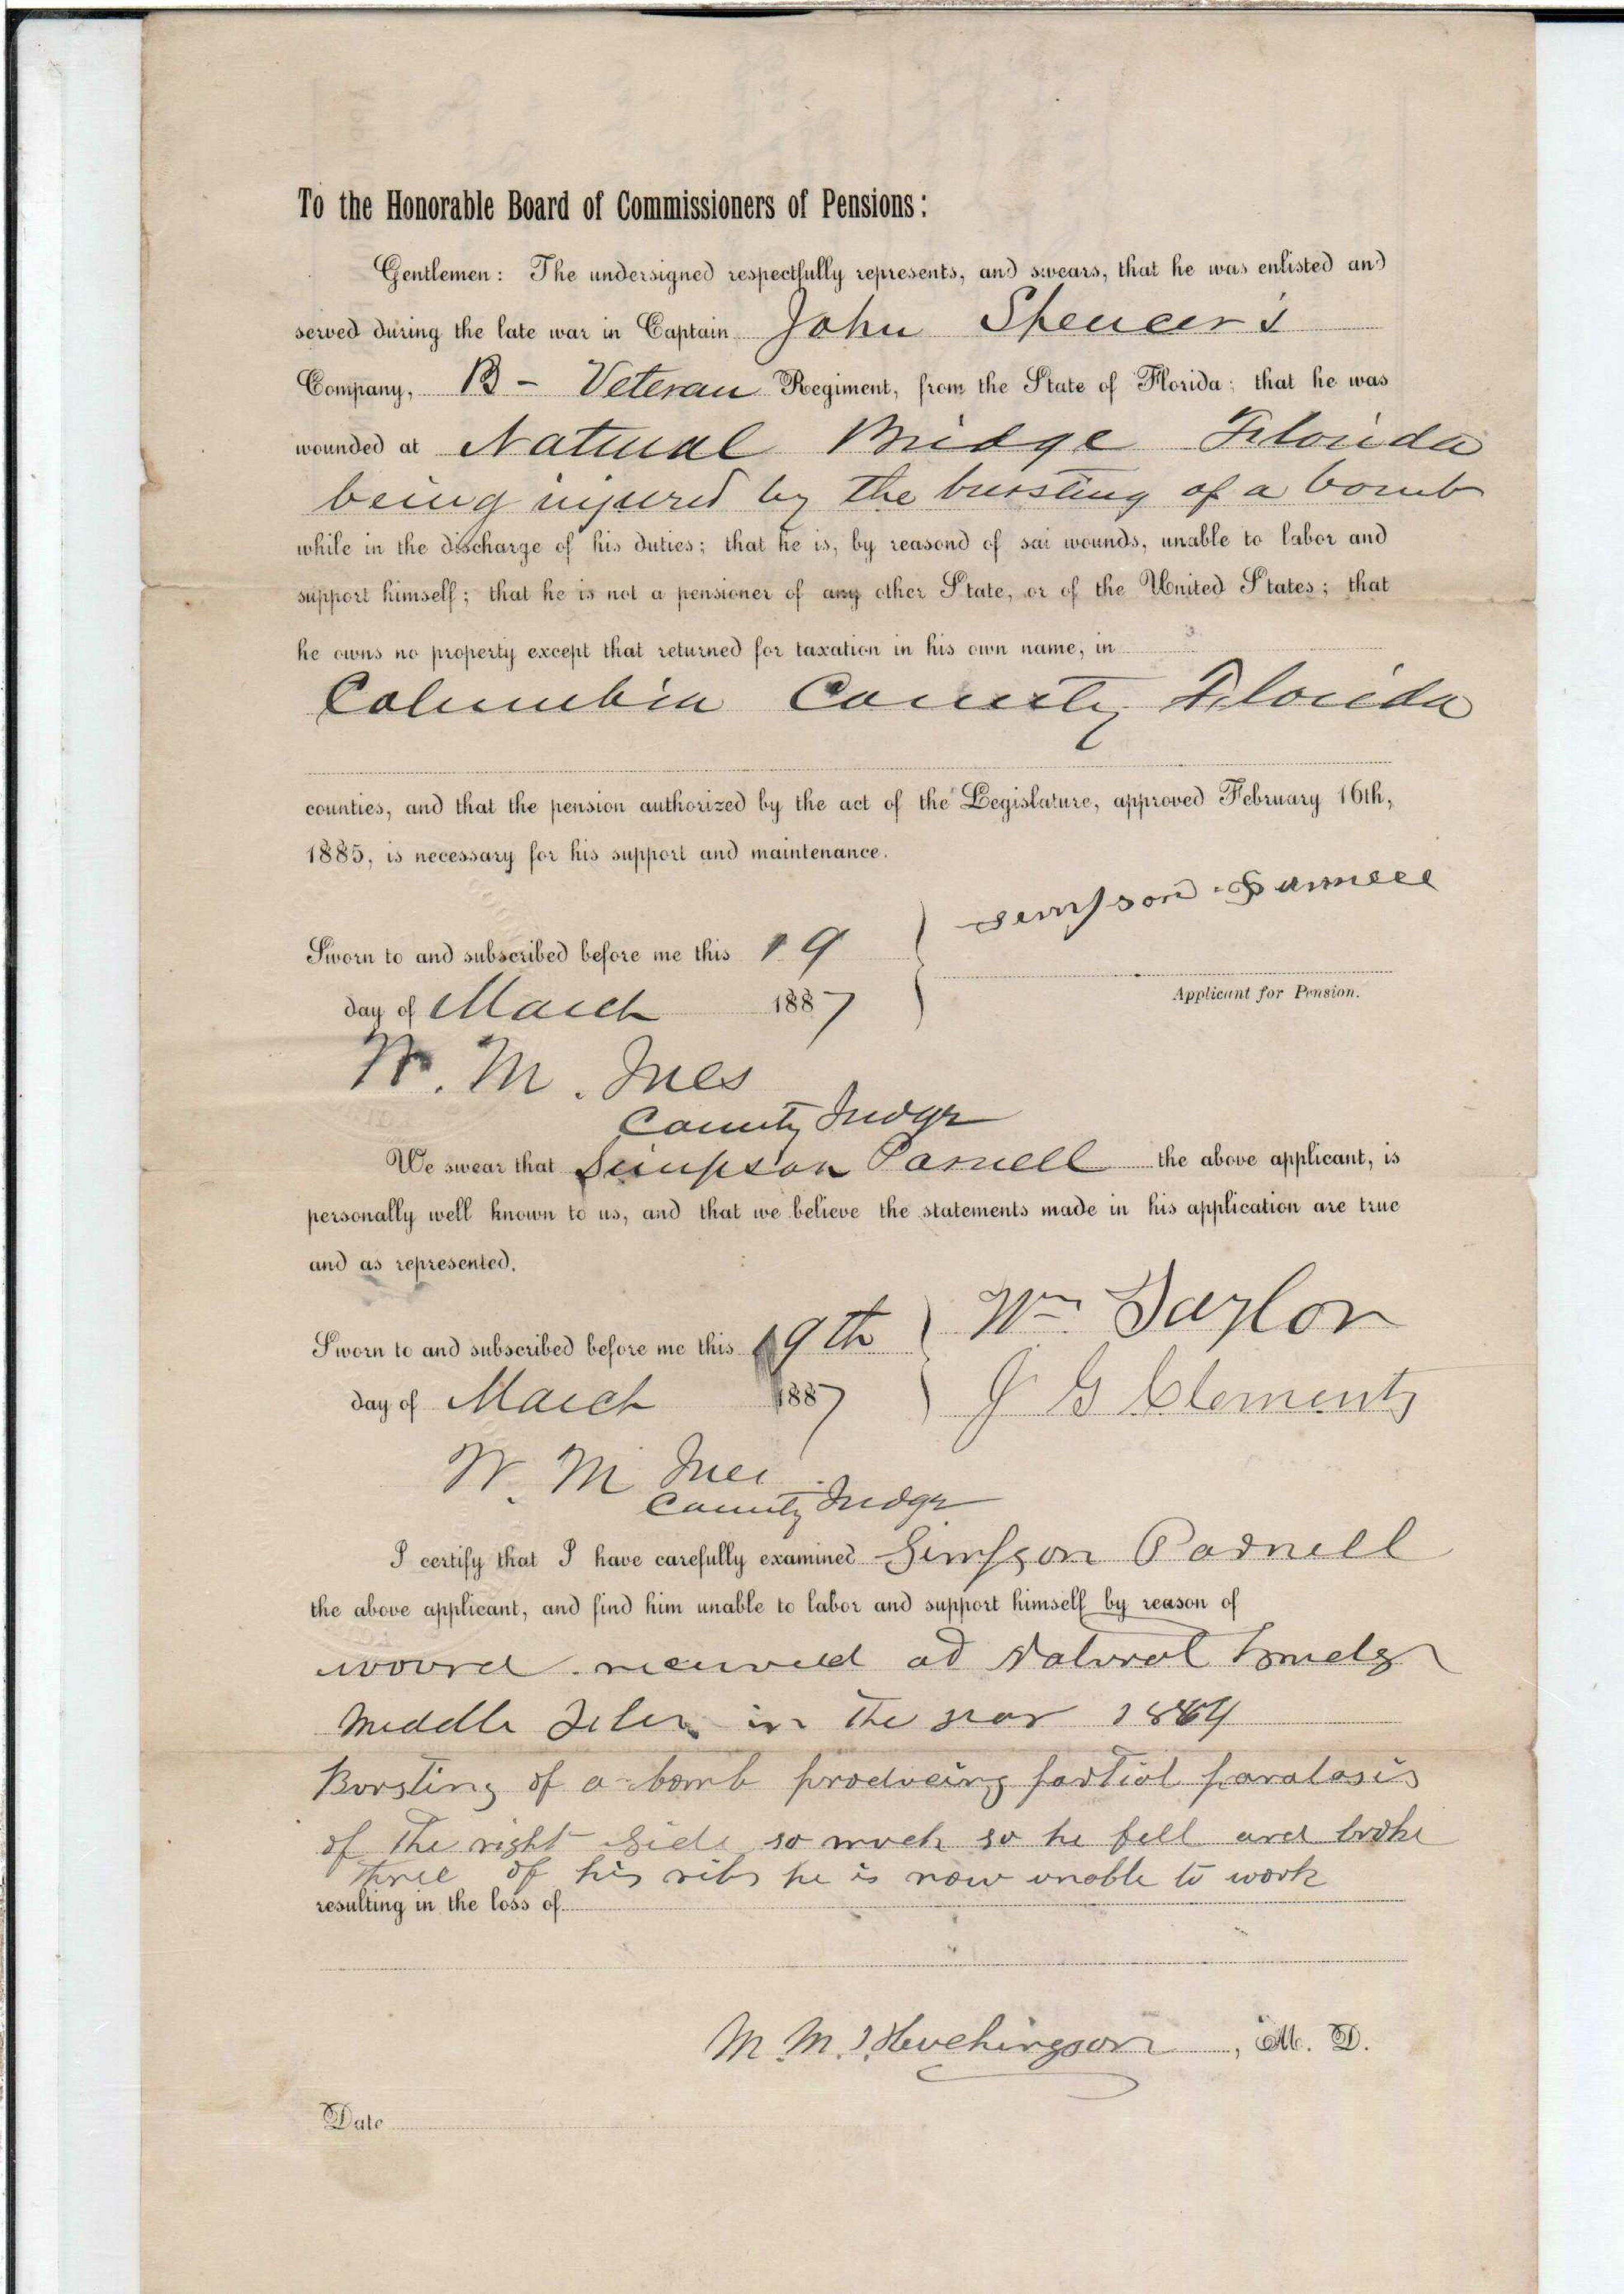 To the Honorable Board of Commissioners of Pensions:
Gentlemen: The undersigned respectfully represents, and swears, that he was enlisted and
served during the late war in Captain John Spencer's
Company, B - Veteran Regiment, from the State of Florida; that he was
wounded at Natural Bridge Florida
being injured by the bursting of a bomb
while in the discharge of his duties; that he is, by reasond of sai wounds, unable to labor and
support himself; that he is not a pensioner of any other State, or of the United States; that
he owns no property except that returned for taxation in his own name, in
Columbia County Florida
counties, and that the pension authorized by the act of the Legislature, approved February 16th,
1885, is necessary for his support and maintenance.
Simpson Parnell
Sworn to and subscribed before me this 19
Applicant for Pension.
day of March 1887
W. M. Ives
County Judge
We swear that Simpson Parnell the above applicant, is
personally well known to us, and that we believe the statements made in his application are true
and as represented.
Wm Taylor
Sworn to and subscribed before me this 19th
day of March 1887
J G Clements
W. M Ives
County Judge
I certify that I have carefully examined Simpson Parnell
the above applicant, and find him unable to labor and support himself by reason of
wound received at Natural
Middle in the year 1864
Bursting of a bomb produceing partial paralasis
of the right side so much so he fell and broke
three of his ribs he is now unable to work
resulting in the loss of
M. M. , M. D.
Date